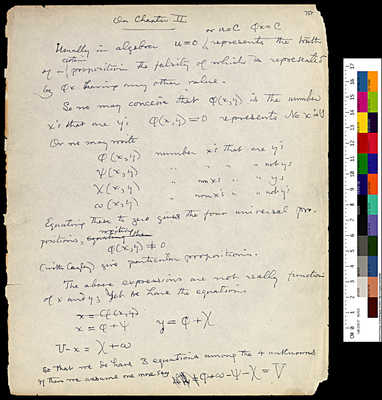 On Chapter II
or u=C φx=C
Usually in algebra u=0 represents the truth
certain
of proposition the falsity of which is represented
by φx having any other value.
So we may conceive that φ(x,y) is the number
x's that are y's φ(x,y)=0 represents No x is y
Or we may write
φ(x,y) number x's that are y's
ψ(x,y) " " " " not ys
χ(x,y) " non x's " " ys
ω(x,y) " non x's " " not y's
Equating these to zero gives the four universal pro-
positions, writing
φ(x,y) ≠ 0
give particular propositions.
The above expressions are not really functions
of x and y; yet we have the equations
x = φ(x,y)
x = φ+ψ y = φ+χ
V-x = χ+ω
So that we have 3 equations among the 4 unknowns
if then we assume one more say